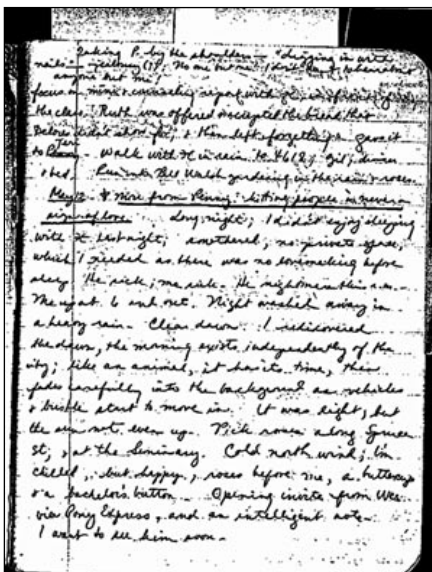 Taking P. by the shoulders "digging in with
nails" - jealousy (?). No one but me! I don't
anyone but me!
focus on mine & counseling rapport with
the class. Ruth was offered & accepted the bread that
Dolores didn't ask for, & then left forgetting. gave it
to Jeri Penny - Walk with in rain to 4618; dinner
& bed. Run into Bill Walsh gardening in the rain & roses.
May 2 & more from Penny: hitting people is never a
sign of love. Long night; I didn't enjoy sleeping
with last night; smothered, no private space,
which I needed as there was no lovemaking before
sleep. He sick; me sick. He nightmares this a.m.
Me up at 6 and out. Night washed away in
a heavy rain - Clear dawn. I rediscovered
the dawn, the morning exists independently of the
city; like an animal, it has its time, then
fades carefully into the background as vehicles
& bustle start to move in. It was light, but
the sun not even up. Pick roses along Spruce
St, & at the Seminary. Cold north wind; I'm
chilled, but happy, roses before me, a buttercup
& a bachelor's button - Opening invite from Wes
via Pony Express, and an intelligent note -
I want to see him soon -